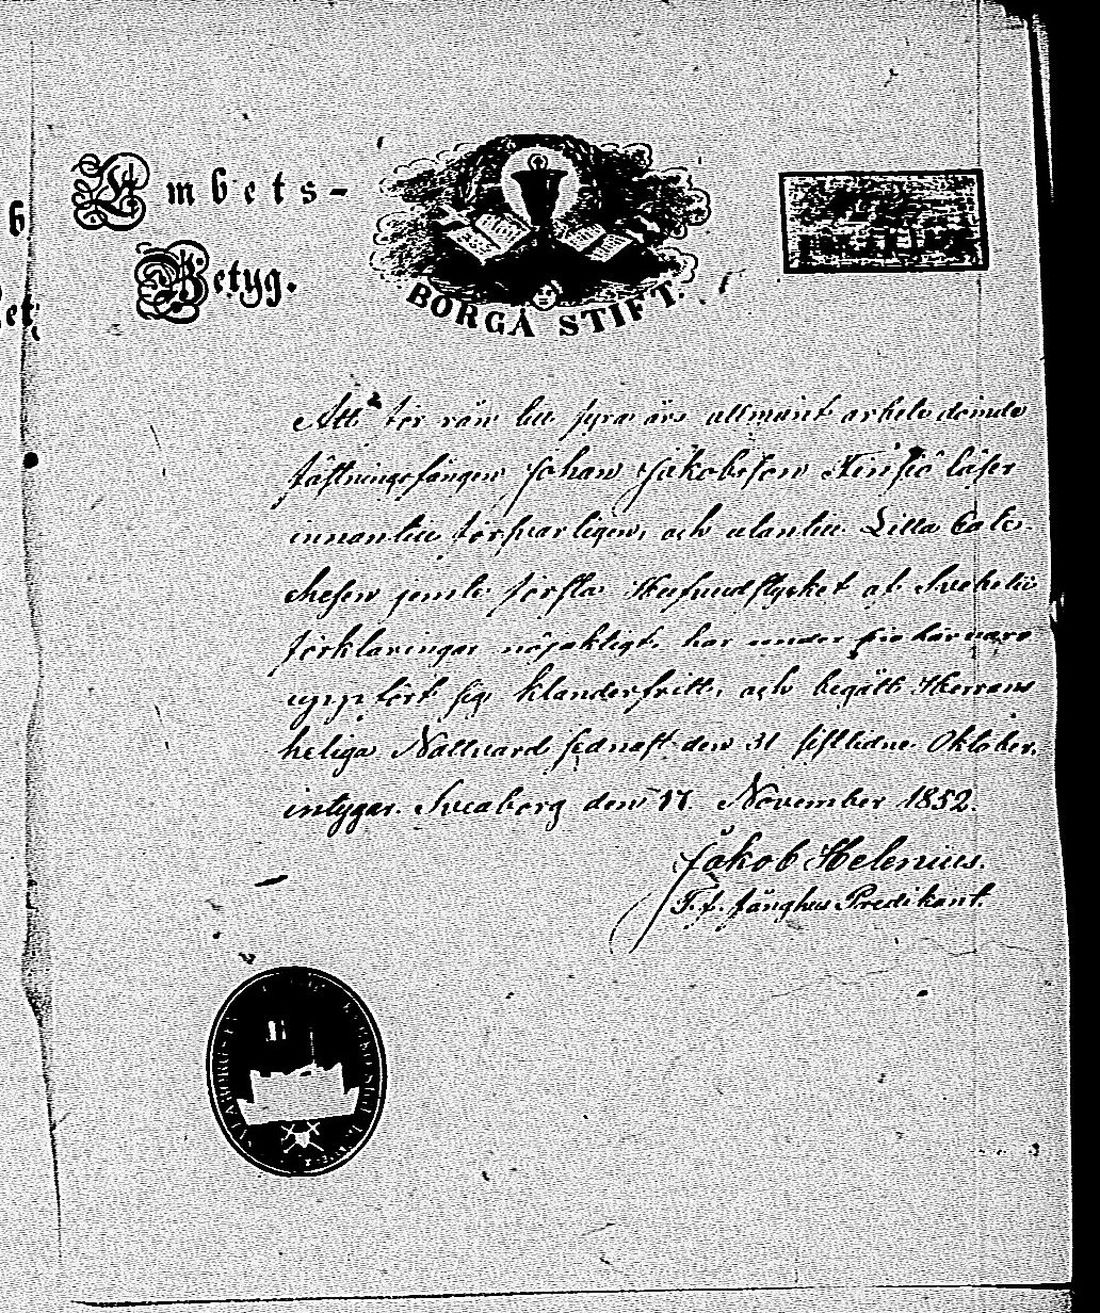 Embets-
Betyg.
BORGÅ STIFT.
Att för rån till fyra års allmänt arbete dömde
fästningsfången Johan Jakobsson läser
innantill försvarligen, och utantill Lilla Cate-
chesen jemte första Hufvudstycket af Svebelii
förklaringar nöjaktigt, har under sin härvaro
uppfört sig klanderfritt, och begått Herrans
heliga Nattvard sednast den 31 sistledne Oktober,
intygar. Sveaborg den 17. November 1852.
Jakob Helenius.
T. f. Fånghus Predikant.